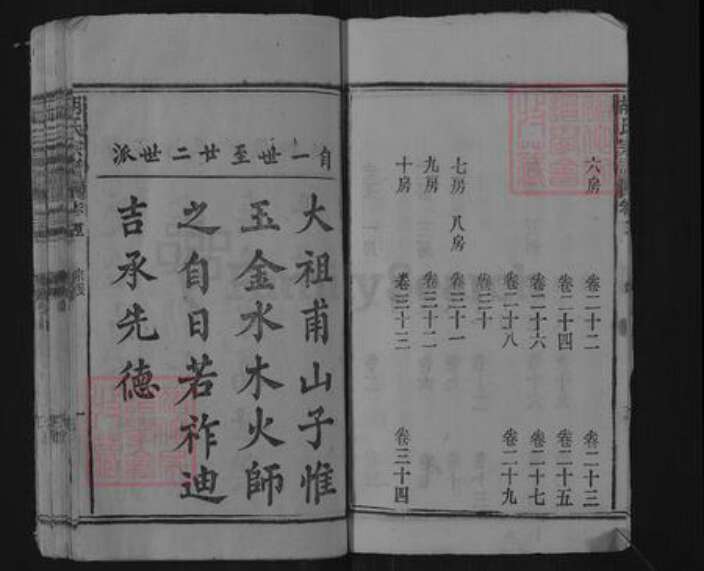 六房 卷二十二 卷二十三
卷二十四 卷二十五
卷二十六 卷二十七
卷二十八 卷二十九
卷三十
七房 八房 卷三十一
九房 卷三十二
十房 卷三十三 卷三十四
自一世至廿二世派
大祖甫山子惟
玉金水木火師
之自日若祚迪
吉承先德